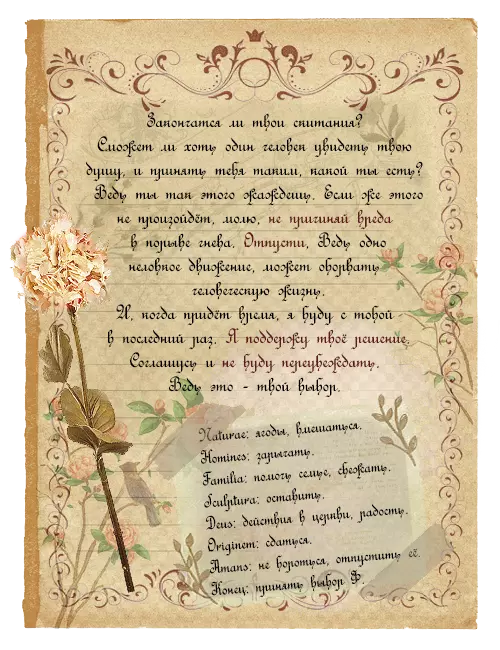 Закончатся ли твои скитания?
Сможет ли хоть один человек увидеть твою
душу, и принять тебя таким, какой ты есть?
Ведь ты так этого жаждешь. Если же этого
не произойдёт, молю, не причиняй вреда
в порыве гнева. Отпусти. Ведь одно
неловкое движение, может оборвать
человеческую жизнь.
И, когда придёт время, я буду с тобой -
в последний раз. Я поддержу твоё решение.
Соглашусь и не буду переубеждать.
Ведь это - твой выбор.
Naturae: ягоды, вмешаться.
Homines: зарычать.
Familia: помочь семье, сбежать.
Sculptura: оставить.
Deus: действия в церкви, радость.
Originem: сдаться.
Amans: не бороться, отпустить её.
Конец: принять выбор Ф.